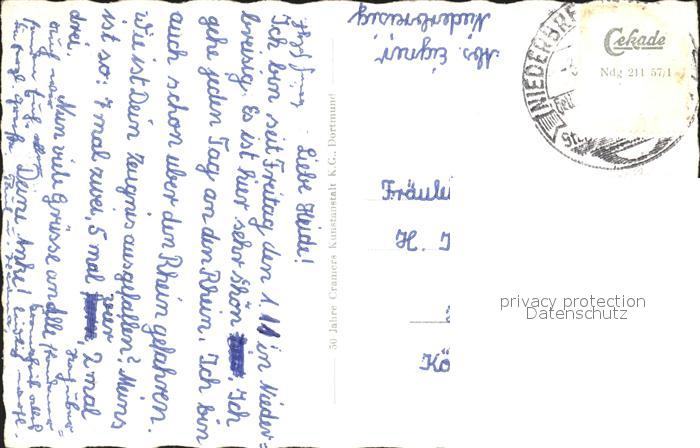 Liebe Heidi!
Ich bin seit Freitag den 1. in Nieder=
breisig. Es ist hier sehr schön. Ich
gehe jeden Tag an den Rhein. Ich bin
auch schon über den Rhein gefahren.
Wie ist Dein Zeugnis ausgefallen? Meins
ist so: 7 mal zwei, 5 mal 2 mal
drei.
Nun viele Grüsse an alle
Deine Anke!
50 Jahre Cramers Kunstanstalt K.G., Dortmund
Abs. Eigner
Niederbreisig
NIEDERBRE
Cekade
Ndg 211 57/1
Fräulei
H.
Kö
privacy protection
Datenschutz